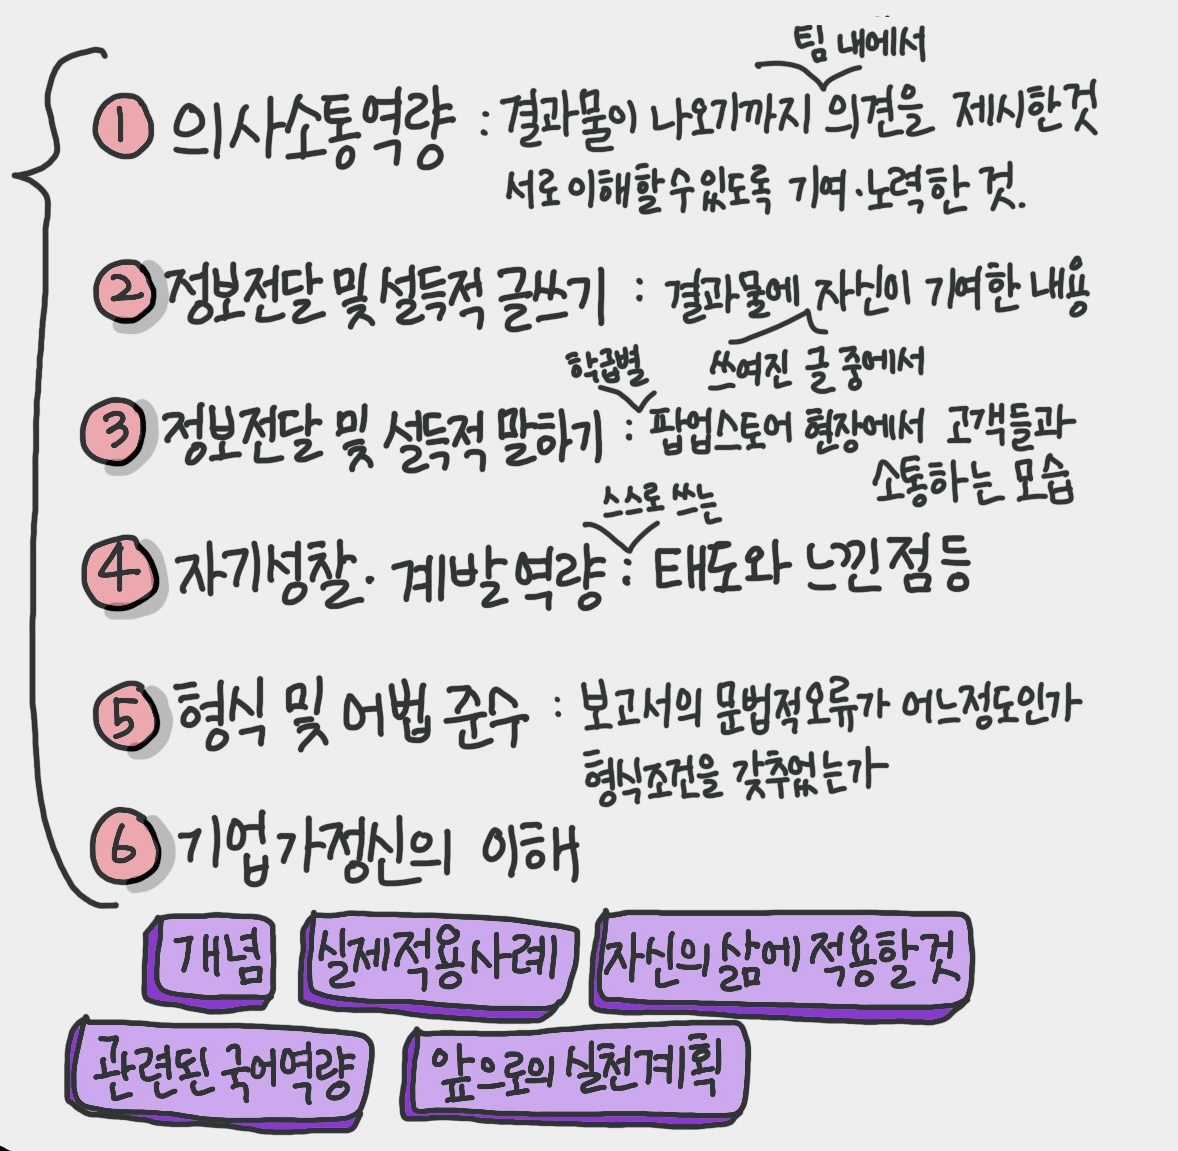 팀 내에서
① 의사소통역량 : 결과물이 나오기까지 의견을 제시한것
서로 이해할 수 있도록 기여·노력한 것.
② 정보전달 및 설득적 글쓰기 : 결과물에 자신이 기여한 내용
학급별 쓰여진 글 중에서
③ 정보전달 및 설득적 말하기 : 팝업스토어 현장에서 고객들과
소통하는 모습
스스로 쓰는
④ 자기성찰·계발역량 : 태도와 느낀점 등
⑤ 형식 및 어법 준수 : 보고서의 문법적오류가 어느정도인가
형식조건을 갖추었는가
⑥ 기업가정신의 이해
개념 실제적용사례 자신의 삶에 적용할 것
관련된 국어역량 앞으로의 실천계획